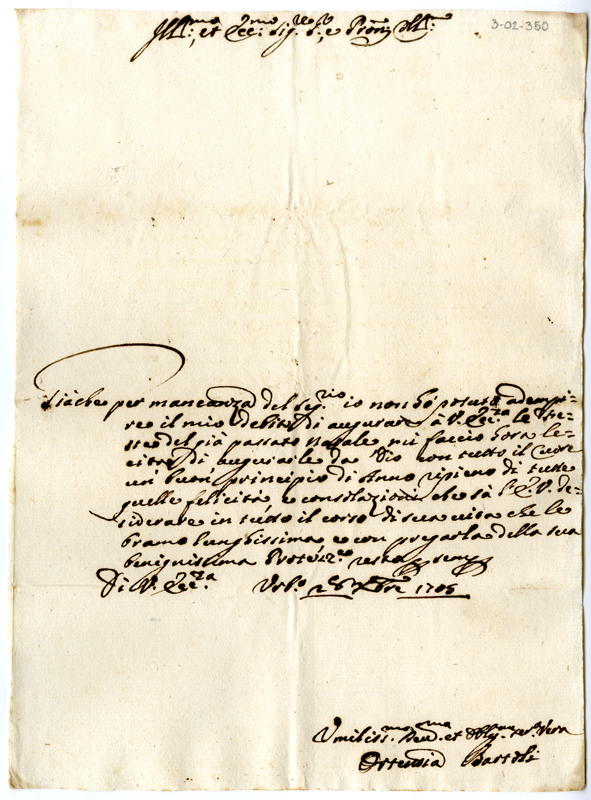 3-02-350
Ill.mo et Ecc.mo Sig.re e Pron Oss.mo
Giache per mancanza del seg.rio io non hò potuto adempi=
re il mio debito di augurare à V. Ecc.za le fe=
ste del già passato natale mi faccio hora le=
cito di augurarle da Dio con tutto il Cuore
un buon principio di Anno ripieno di tutte
quelle felicità e consolazioni che sà l'E.V. de=
siderare in tutto il corso di sua vita che le
bramo lunghissima e con pregarla della sua
benignissima Protez.ne resto sem
Di V. Ecc.za Urb.o Xbre 1705
Umiliss.ma Deu.ma et Obl.ma ser.a Vera
Ortensia Bartoli